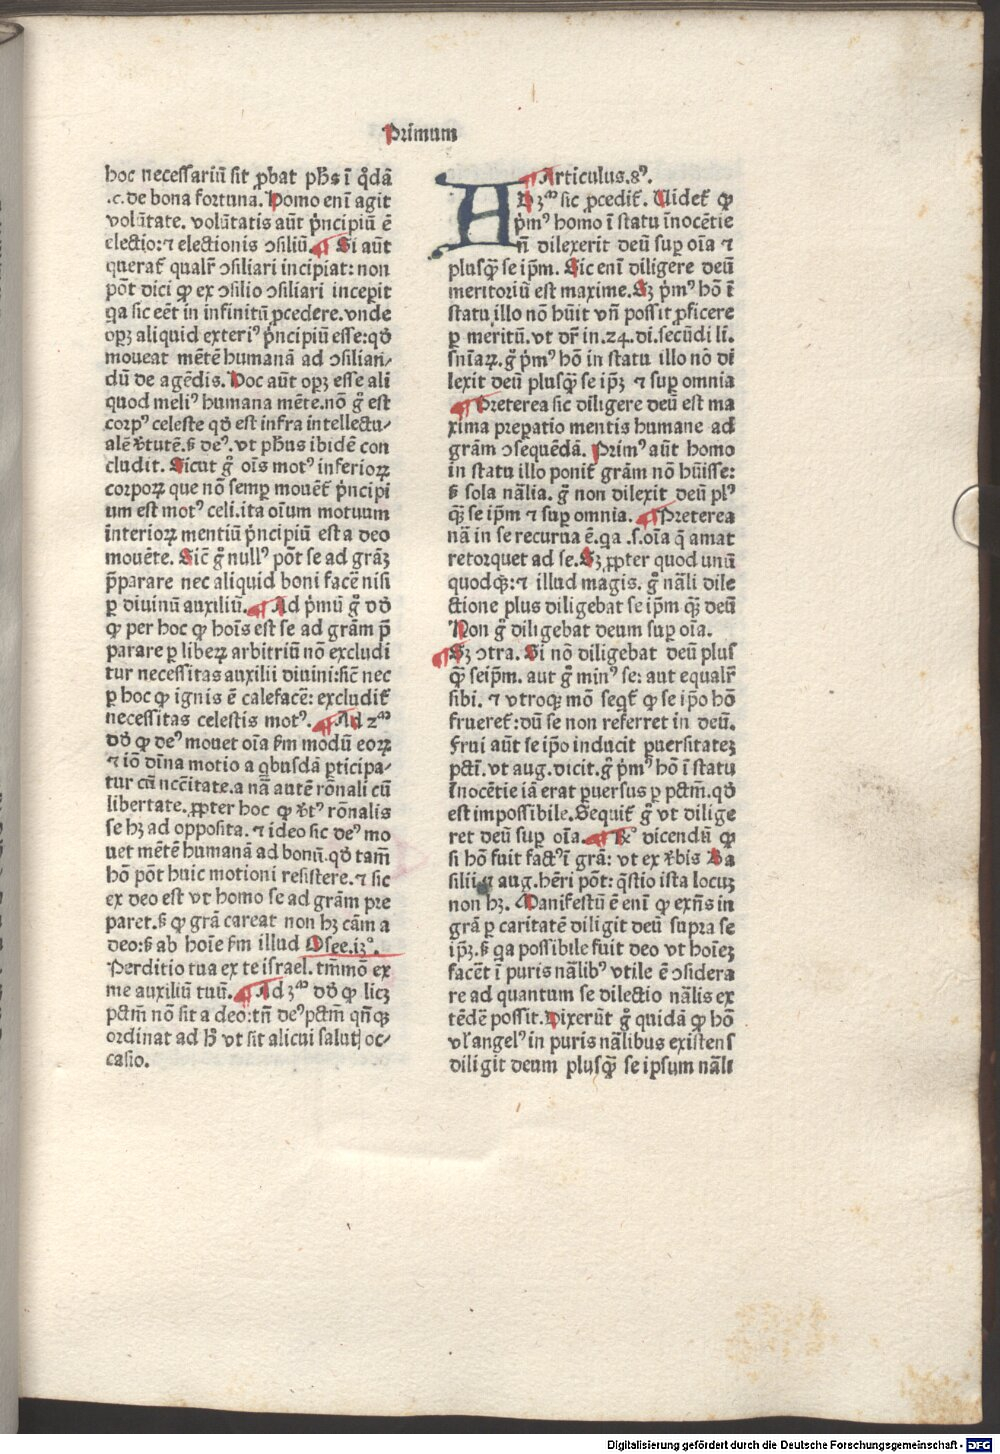 Primum
hoc necessariū sit ꝓbat pħs ī qͦdā
.c. de bona fortuna. Homo enī agit
volūtate. volūtatis aūt pͥncipiū ē
electio: ⁊ electionis ꝯsiliū. Si aūt
querat᷑ qualr̄ ꝯsiliari incipiat: non
pōt dici ꝙ ex ꝯsilio ꝯsiliari inceperit
qa sic eēt in infinitū ꝓcedere. vnde
opꝫ aliquid exteriꝰ pͥncipiū esse: qḋ
moueat mētē humanā ad ꝯsilian⸗
dū de agēdis. Hoc aūt opꝫ esse ali
quod meliꝰ humana mēte. nō gͦ est
corpꝰ celeste qḋ est infra intellectu⸗
alē v̄tutē. ß deꝰ. vt pħus ibidē con
cludit. Sicut gͦ oīs motꝰ inferioꝝ
corpoꝝ que nō semꝑ mouēt᷑ pͥncipi
um est motꝰ celi. ita oīum motuum
interioꝝ mentiū pͥncipiū est a deo
mouēte. Sic̄ gͦ nullꝰ pōt se ad grāꝫ
p̄parare nec aliquid boni facē nisi
ꝑ diuinū auxiliū. Ad pͥmū gͦ dḋ
ꝙ per hoc ꝙ hoīs est se ad grām p̄
parare ꝑ libeꝝ arbitriū nō excludi
tur necessitas auxilii diuini: sic̄ nec
ꝑ hoc ꝙ ignis ē calefacē: excludit᷑
necessitas celestis motꝰ. Ad 2ᵐ
dḋ ꝙ deꝰ mouet oīa ẜm modū eoꝝ
⁊ iō dīna motio a qbusdā ꝑticipa⸗
tur cū nccītate. a nā autē rōnali cū
libertate. ꝓpter hoc ꝙ v̄tꝰ rōnalis
se hꝫ ad opposita. ⁊ ideo sic deꝰ mo
uet mētē humanā ad bonū. qḋ tam̄
hō pōt huic motioni resistere. ⁊ sic
ex deo est vt homo se ad grām pre
paret. ß ꝙ grā careat non hꝫ cām a
deo: ß ab hoīe ẜm illud Osee. iꝫͦ.
Perditio tua ex te israel. tm̄mō ex
me auxiliū tuū. Ad ꝫᵐ dḋ ꝙ licꝫ
pctm̄ nō sit a deo: tn̄ deꝰ pctm̄ qn̄qꝫ
ordinat ad ħ vt sit alicui salutꝭ oc⸗
casio.
Articulus. 8ꝰ.
ADꝫᵐ sic ꝓcedit᷑. Uidet᷑ ꝙ
pͥmꝰ homo ī statu īnocētie
n̄ dilexerit deū suꝑ oīa ⁊
plusꝙ̄ se ip̄m. Sic enī diligere deū
meritoriū est maxime. Sꝫ pͥmꝰ hō ī
statu illo nō hūit vn̄ possit ꝓficere
ꝑ meritū. vt dr̄ in. 24. di. secūdi li.
sniāꝝ. gͦ pͥmꝰ hō in statu illo nō di
lexit deū plusꝙ̄ se ip̄ꝫ ⁊ suꝑ omnia
Preterea sic diligere deū est ma
xima preꝑatio mentis humane ad
grām ꝯsequēdā. Primꝰ aūt homo
in statu illo ponit᷑ grām nō hūisse:
ß sola nālia. gͦ non dilexit deū plꝰ
qꝫ̄ se ip̄m ⁊ suꝑ omnia. Preterea
nā in se recurua ē. qa .s. oīa q̄ amat
retorquet ad se. Sꝫ ꝓpter quod unū
quodqꝫ: ⁊ illud magis. gͦ nāli dile
ctione plus diligebat se ip̄m qꝫ̄ deū
Non gͦ diligebat deum suꝑ oīa.
Sꝫ ꝯtra. Si nō diligebat deū plus
ꝙ̄ seip̄m. aut gͦ minꝰ se: aut equalr̄
sibi. ⁊ vtroqꝫ mō seqt᷑ ꝙ se ip̄o hō
frueret᷑: dū se non referret in deū.
Frui aūt se ip̄o inducit ꝑuersitateꝫ
pctī. vt aug. dicit. gͦ pͥmꝰ hō ī statu
īnocētie iā erat ꝑuersus ꝑ pctm̄. qḋ
est impossibile. Sequit᷑ gͦ vt dilige
ret deū suꝑ oīa. R̄ꝰ dicendū ꝙ
si hō fuit factꝰ ī grā: vt ex v̄bis Ba
silii ⁊ aug. hēri pōt: qͥstio ista locuꝫ
non hꝫ. Manifestū ē enī ꝙ exn̄s in
grā ꝑ caritatē diligit deū supra se
ip̄ꝫ. ß qa possibile fuit deo vt hoīeꝫ
facēt ī puris nālibꝰ vtile ē ꝯsidera
re ad quantum se dilectio nālis ex
tēdē possit. Dixerūt gͦ quidā ꝙ hō
vl̄ angelꝰ in puris nālibus existens
diligit deum plusꝙ̄ se ipsum nāli
Digitalisierung gefördert durch die Deutsche Forschungsgemeinschaft - DFG